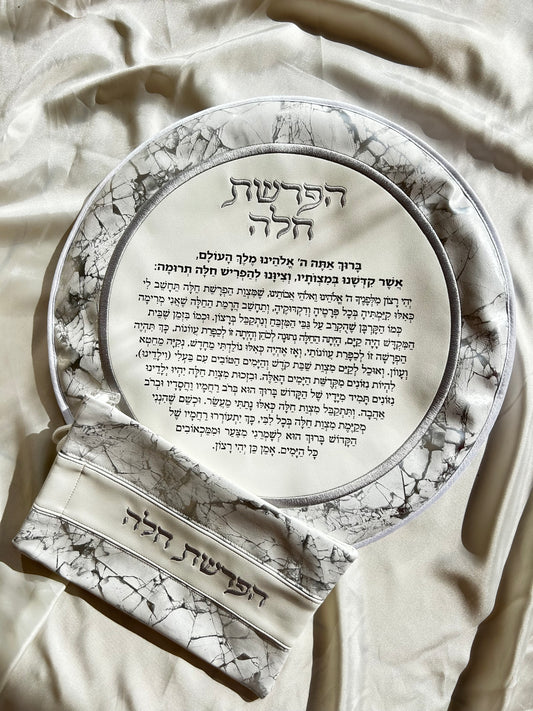 הפרשת
חלה
בָּרוּךְ אַתָּה ה' אֱלֹהֵינוּ מֶלֶךְ הָעוֹלָם,
אֲשֶׁר קִדְּשָׁנוּ בְּמִצְוֹתָיו, וְצִיוָּנוּ לְהַפְרִישׁ חַלָּה תְּרוּמָה:
יְהִי רָצוֹן מִלְּפָנֶיךָ ה' אֱלֹהֵינוּ וֵאלֹהֵי אֲבוֹתֵינוּ, שֶׁמִּצְוַת הַפְרָשַׁת חַלָּה תֵּחָשֵׁב לִי
כְּאִלּוּ קִיַּמְתִּיהָ בְּכָל פְּרָטֶיהָ וְדִקְדּוּקֶיהָ, וְתֵחָשֵׁב הֲרָמַת הַחַלָּה שֶׁאֲנִי מְרִימָה
כְּמוֹ הַקָּרְבָּן שֶׁהֻקְרַב עַל גַּבֵּי הַמִּזְבֵּחַ וְנִתְקַבֵּל בְּרָצוֹן. וּכְמוֹ בִּזְמַן שֶׁבֵּית
הַמִּקְדָּשׁ הָיָה קַיָּם, הָיְתָה הַחַלָּה נְתוּנָה לַכֹּהֵן וְהָיְתָה זוֹ לְכַפָּרַת עֲווֹנוֹת, כָּךְ תִּהְיֶה
הַפְרָשָׁה זוֹ לְכַפָּרַת עֲווֹנוֹתַי, וְאָז אֶהְיֶה כְּאִלּוּ נוֹלַדְתִּי מֵחָדָשׁ, נְקִיָּה מֵחֵטְא
וְעָוֹן. וְאוּכַל לְקַיֵּם מִצְוַת שַׁבַּת קֹדֶשׁ וְהַיָּמִים הַטּוֹבִים עִם בַּעְלִי (וִילָדֵינוּ),
לִהְיוֹת נִזּוֹנִים מִקְּדֻשַּׁת הַיָּמִים הָאֵלֶּה. וּבִזְכוּת מִצְוַת חַלָּה יִהְיוּ יְלָדֵינוּ
נִזּוֹנִים תָּמִיד מִיָּדָיו שֶׁל הַקָּדוֹשׁ בָּרוּךְ הוּא בְּרֹב רַחֲמָיו וַחֲסָדָיו וּבְרֹב
אַהֲבָה. וְתִתְקַבֵּל מִצְוַת חַלָּה כְּאִלּוּ נָתַתִּי מַעֲשֵׂר. וּכְשֵׁם שֶׁהִנְנִי
מְקַיֶּמֶת מִצְוַת חַלָּה בְּכָל לִבִּי, כָּךְ יִתְעוֹרְרוּ רַחֲמָיו שֶׁל
הַקָּדוֹשׁ בָּרוּךְ הוּא לְשָׁמְרֵנִי מִצַּעַר וּמִמַּכְאוֹבִים
כָּל הַיָּמִים. אָמֵן כֵּן יְהִי רָצוֹן.
הפרשת חלה